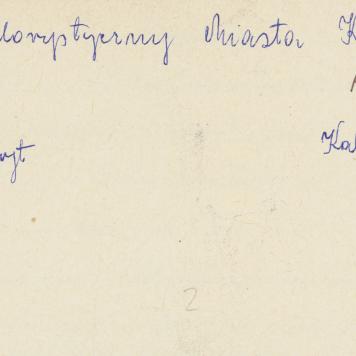 lorystyczny Miasta K
ojt Kal
2